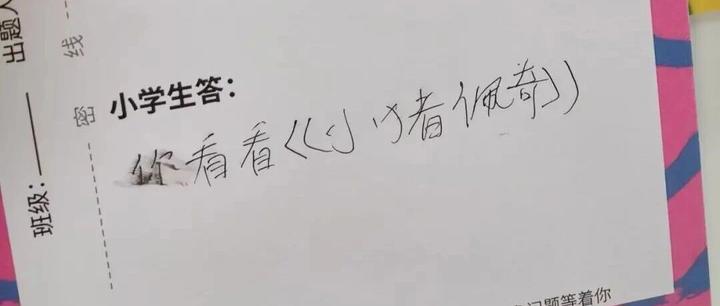 出题人
线
密
班级：
小学生答：
你看看《小猪佩奇》
问题等着你